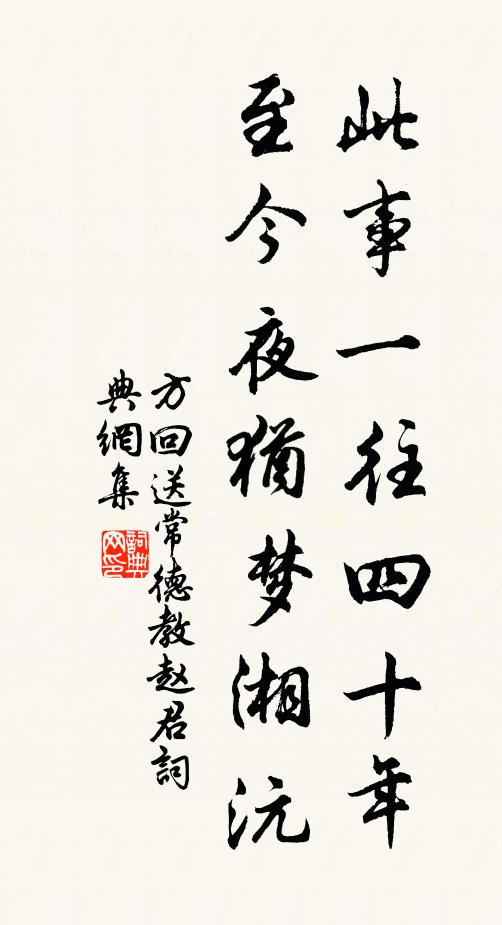 此事一往四十年
至今夜犹梦湘沅
方回送常德教赵君詞
典網集
詞典网印